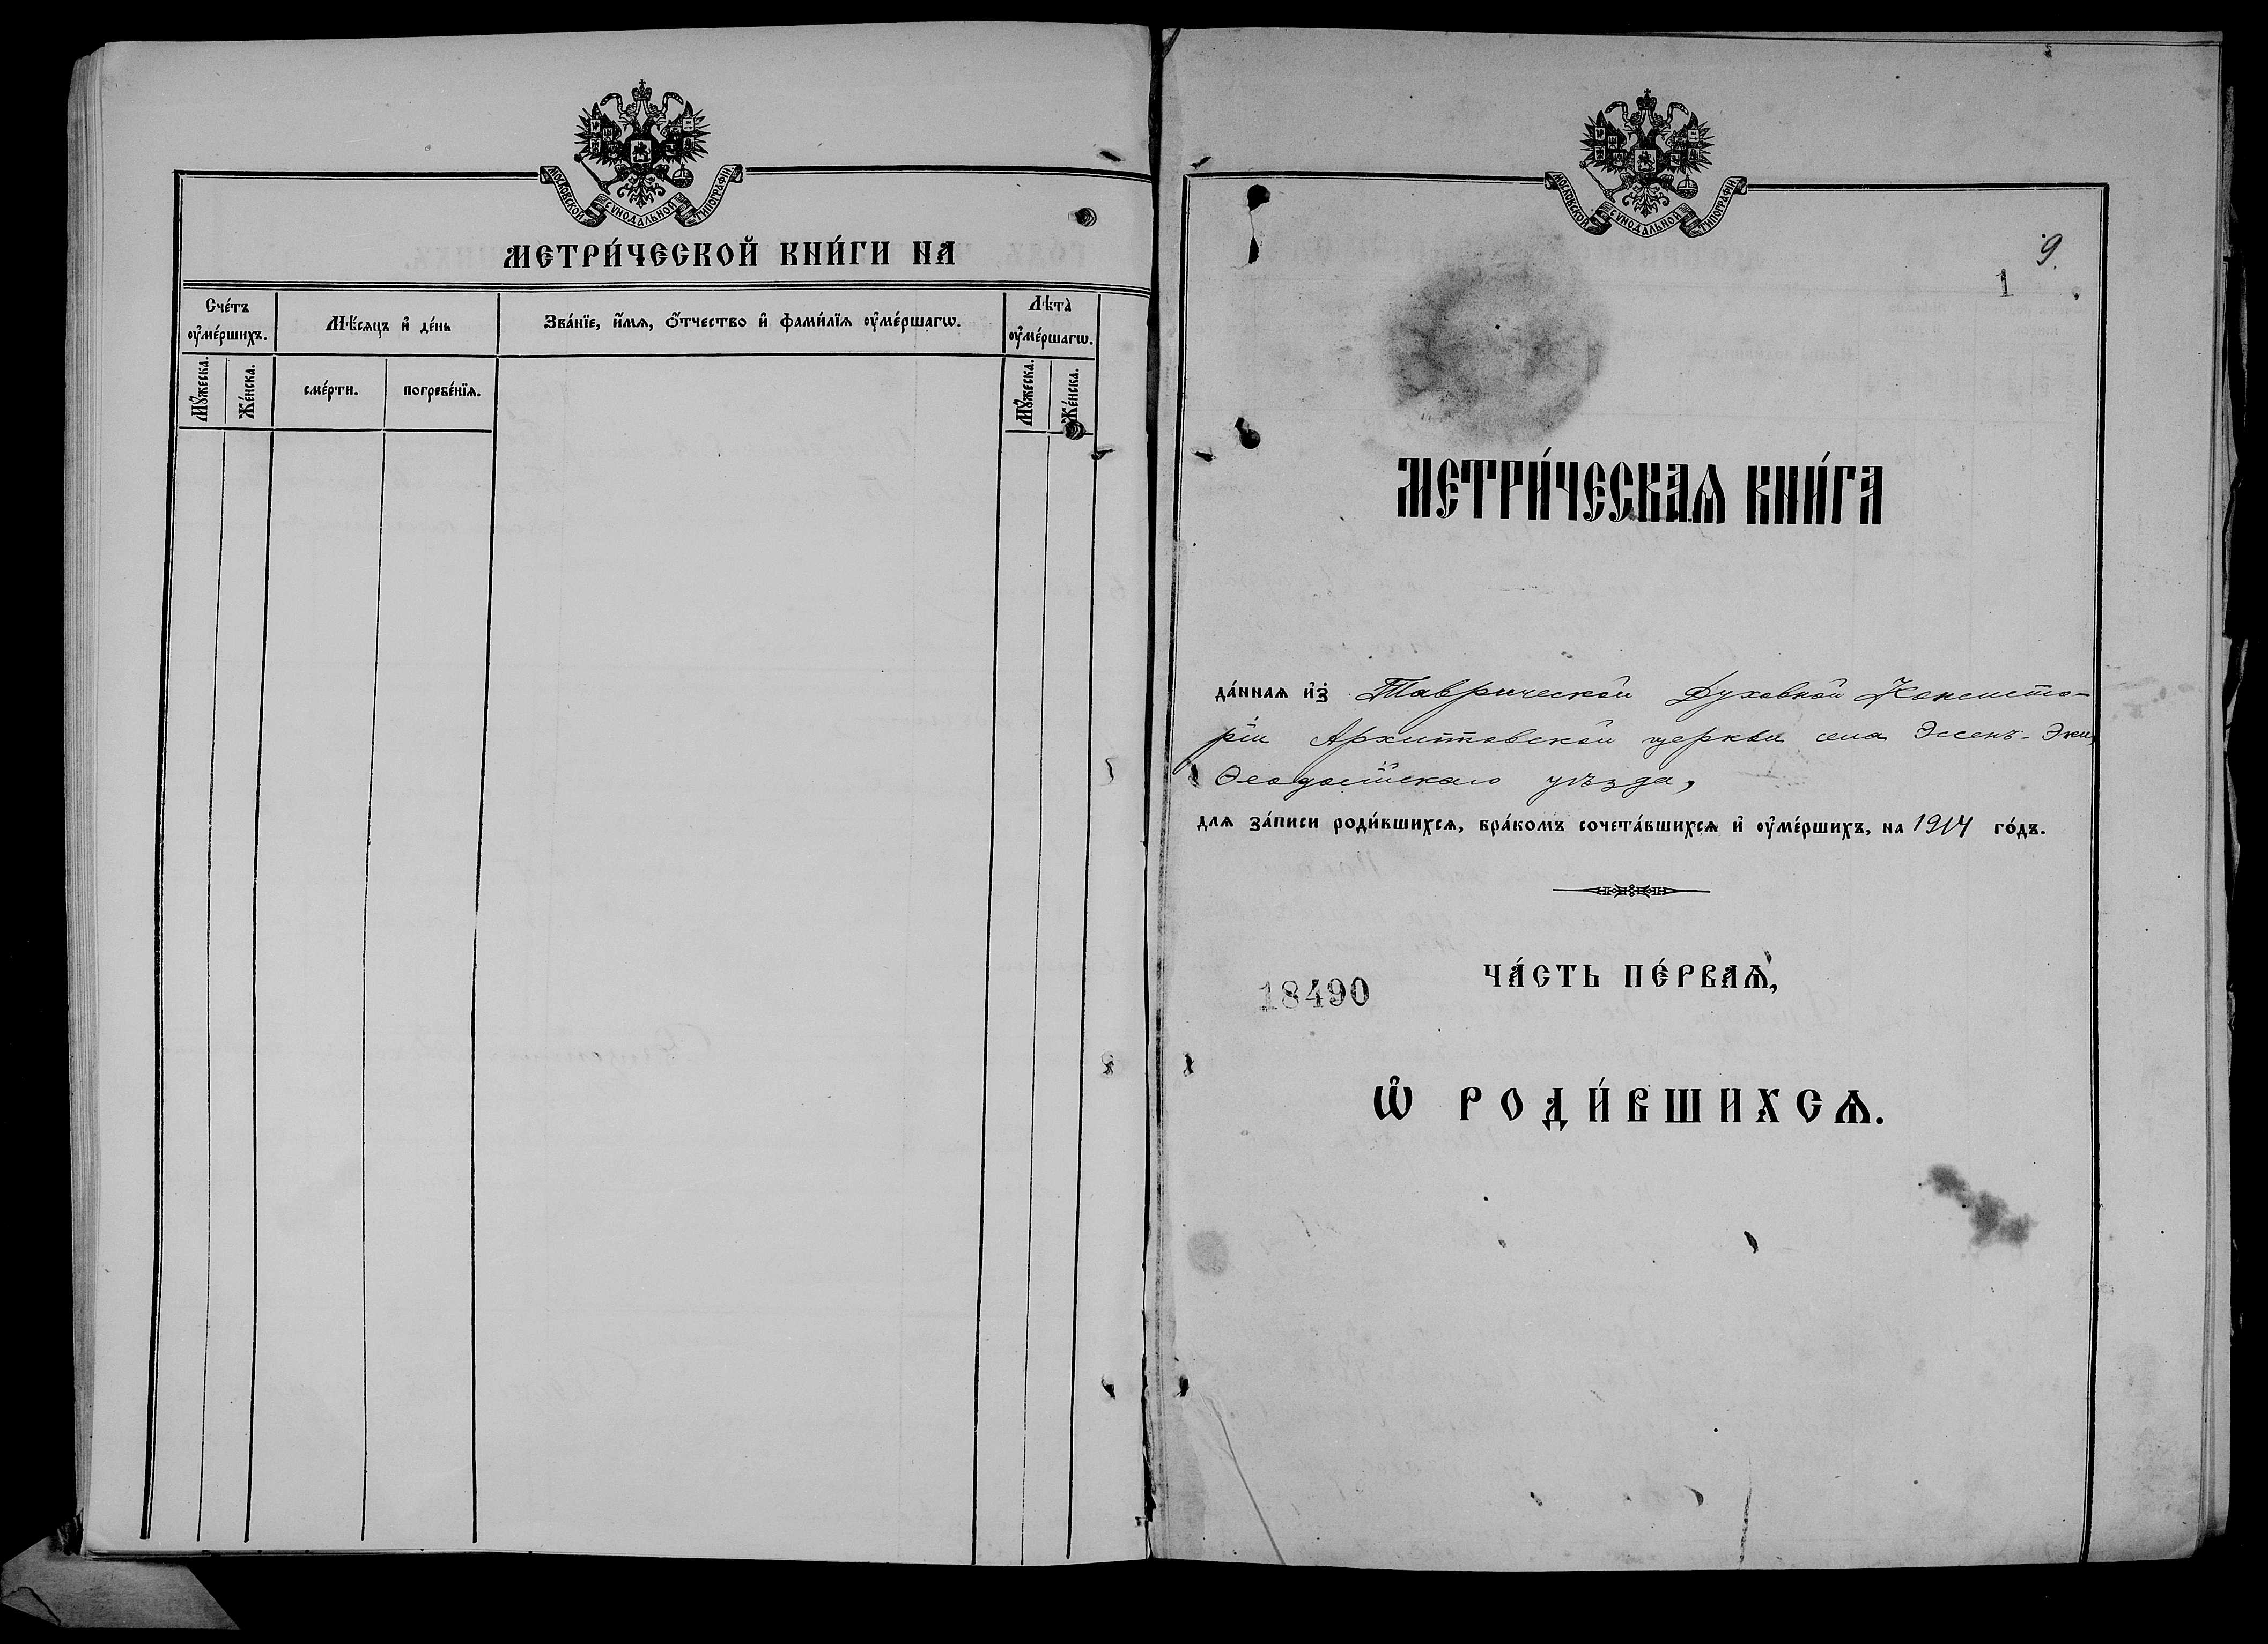 МОСКОВСКОЙ СѴНОДАЛЬНОЙ ТИПОГРАФІИ
МЕТРИ́ЧЕСКОЙ КНИ́ГИ НА
Сче́тъ ᲂу҆ме́ршихъ.
Мѣ́сяцъ и҆ де́нь
Зва́нїе, и҆́мѧ, ѻ҆́тчество и҆ фами́лїѧ ᲂу҆ме́ршагѡ.
Лѣта̀ ᲂу҆ме́ршагѡ.
Мꙋ́жеска.
Же́нска.
сме́рти.
погребе́нїѧ.
Мꙋ́жеска.
Же́нска.
МОСКОВСКОЙ СѴНОДАЛЬНОЙ ТИПОГРАФІИ
9.
1
МЕТРИ́ЧЕСКАѦ КНИ́ГА
да́ннаѧ и҆з̾ Таврической Духовной Консисто-
ріи Архитовской церкви села Эссенъ-Эки,
Ѳеодосійскаго уѣзда,
длѧ за́писи роди́вшихсѧ, бра́комъ сочета́вшихсѧ и҆ ᲂу҆ме́ршихъ, на 1914 го́дъ.
ЧА́СТЬ ПЕ́РВАѦ,
18490
Ѡ҆ РОДИ́ВШИХСѦ.